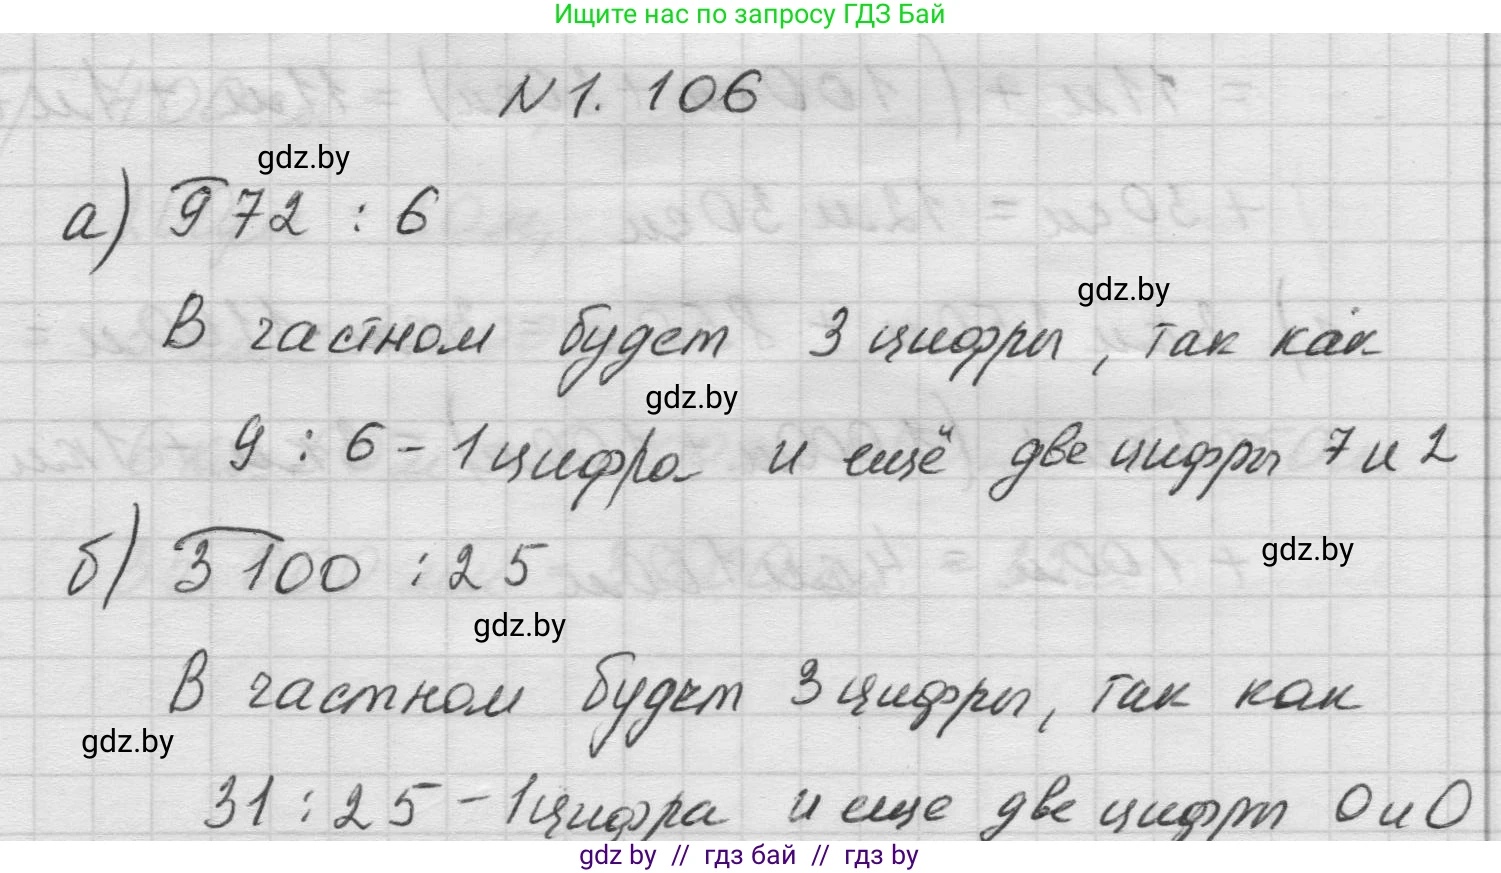 Ищите нас по запросу ГДЗ Бай
N 1. 106
gdz.by
а) 972 : 6
gdz.by
В частном будет 3 цифры, так как
gdz.by
9 : 6 - 1 цифра и ещё две цифры 7 и 2
б) 3100 : 25
gdz.by
gdz.by
В частном будет 3 цифры, так как
gdz.by
31 : 25 - 1 цифра и еще две цифры 0 и 0
gdz by // гдз бай // гдз by